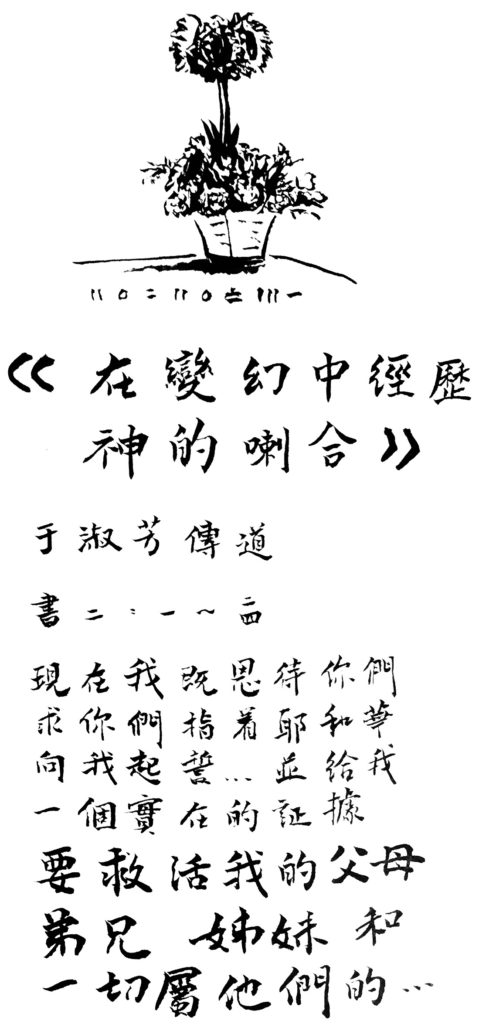 〢〇二〢〇〧〣一
《在變幻中經歷
神的喇合》
于淑芳傳道
書二：一～二四
現在我既恩待你們
求你們指着耶和華
向我起誓…並給我
一個實在的証據
要救活我的父母
弟兄 姊妹 和
一切屬他們的…